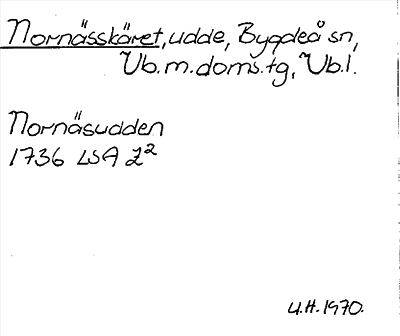 Nornässkäret, udde, Bygdeå sn,
Vb. m. doms. tg, Vb. l.
Nornäsudden
1736 LSA Z²
U.H. 1970.